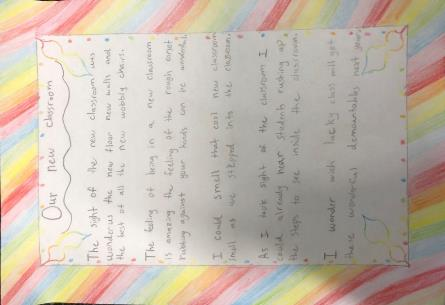 Our new classroom
The sight of the new classroom was
wonderus the new floor new walls and
the best of all the new wobbly chairs.
The feeling of being in a new classroom
is amazing the feeling of the rough carpet
rubbing against your hands can be wonderful.
I could smell that cool new classroom
smell as we stepped into the classroom.
As I took sight of the classroom I
could already hear students rushing up
the steps to see inside the classroom.
I wonder wich lucky class will get
these wonderful demountables next year.